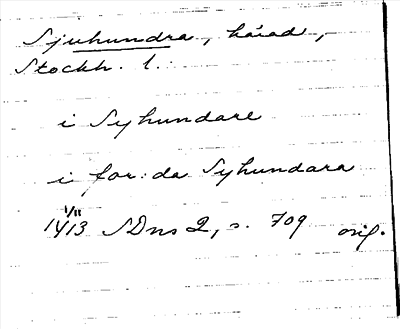 Sjuhundra, härad,
Stockh. l.
i Syhundare
i for: da Syhundara
1/11
1413 SDns 2, s. 709 orig.